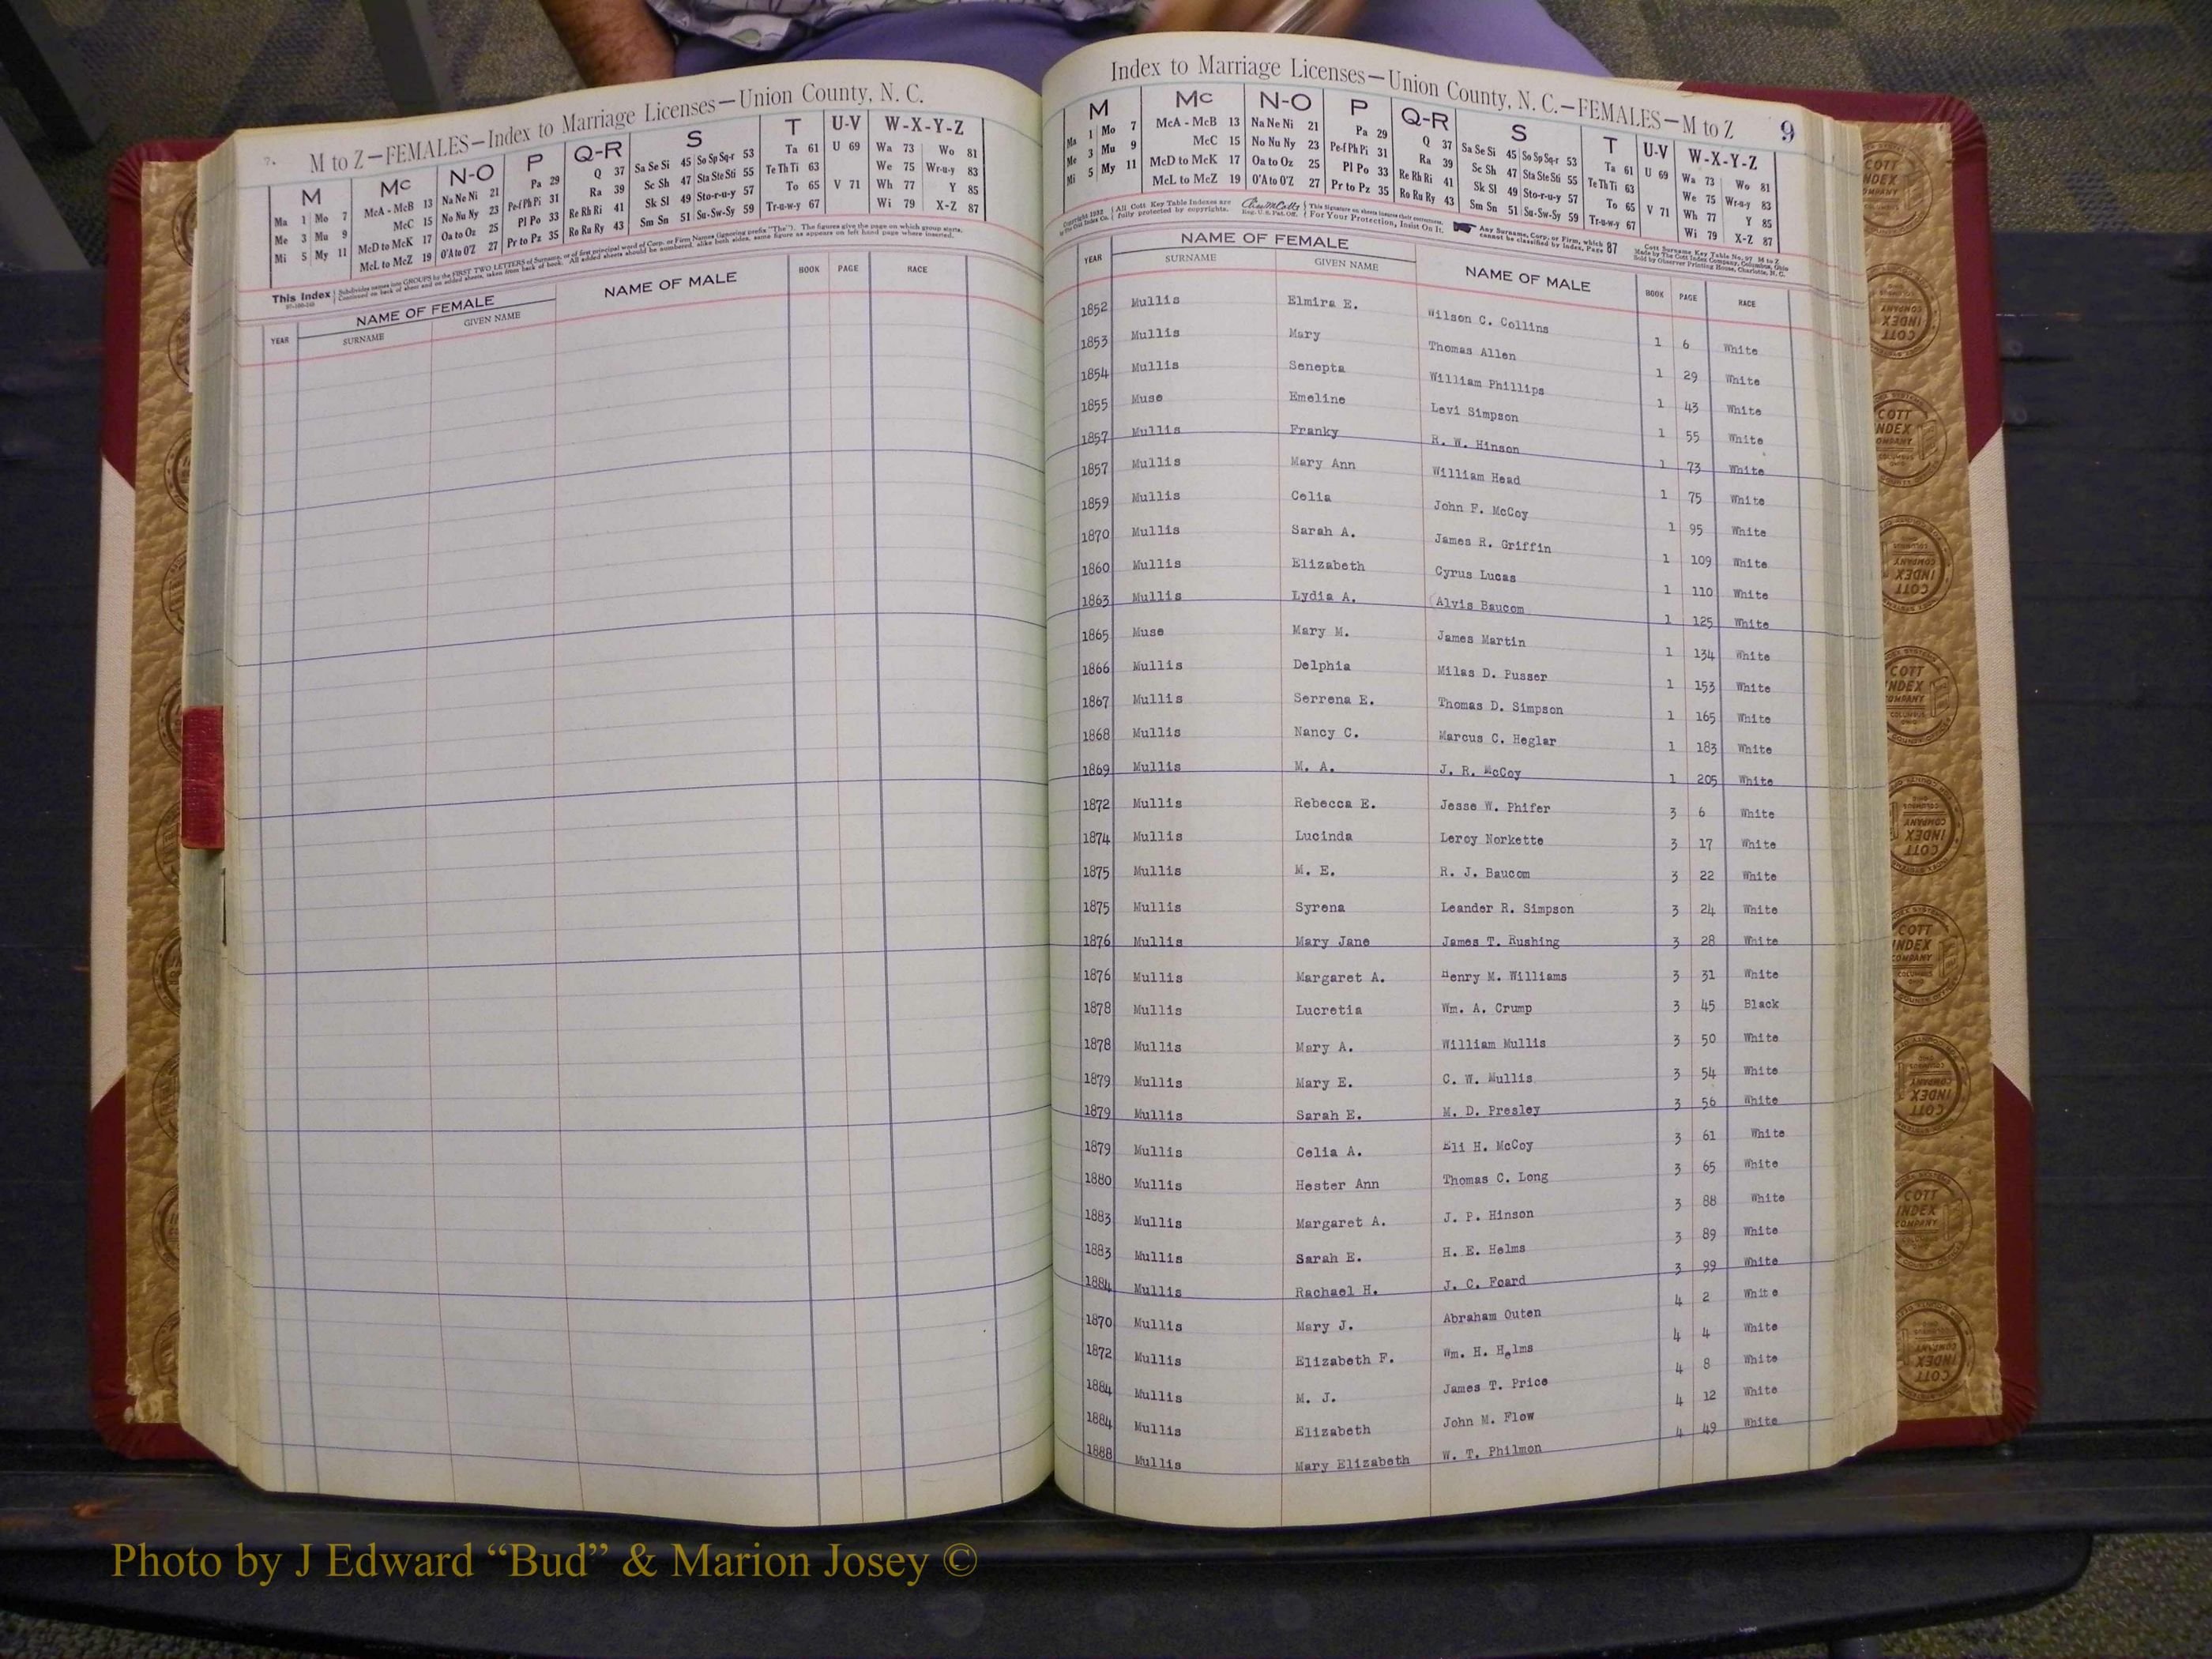 M to Z—FEMALES—Index to Marriage Licenses—Union County, N. C.
M Mc N-O P Q-R S T U-V W-X-Y-Z
Ma 1 Mo 7 McA - McB 13 Na Ne Ni 21 Pa 29 Q 37 Sa Se Si 45 So Sp Sq-r 53 Ta 61 U 69 Wa 73 Wo 81
Me 3 Mu 9 McC 15 No Nu Ny 23 Pe-f Ph Pi 31 Ra 39 Sc Sh 47 Sta Ste Sti 55 Te Th Ti 63 We 75 Wr-u-y 83
Mi 5 My 11 McD to McK 17 Oa to Oz 25 Pl Po 33 Re Rh Ri 41 Sk Sl 49 Sto-r-u-y 57 To 65 V 71 Wh 77 Y 85
McL to McZ 19 O'A to O'Z 27 Pr to Pz 35 Ro Ru Ry 43 Sm Sn 51 Su-Sw-Sy 59 Tr-u-w-y 67 Wi 79 X-Z 87
This Index Subdivides names into GROUPS by the FIRST TWO LETTERS of Surname, or of first principal word of Corp. or Firm Names (ignoring prefix "The"). The figures give the page on which group starts.
Continued on back of sheet and on added sheets, taken from back of book. All added sheets should be numbered, alike both sides, same figure as appears on left hand page where inserted.
YEAR NAME OF FEMALE NAME OF MALE BOOK PAGE RACE
SURNAME GIVEN NAME
Index to Marriage Licenses—Union County, N. C.—FEMALES—M to Z 9
M Mc N-O P Q-R S T U-V W-X-Y-Z
Ma 1 Mo 7 McA - McB 13 Na Ne Ni 21 Pa 29 Q 37 Sa Se Si 45 So Sp Sq-r 53 Ta 61 U 69 Wa 73 Wo 81
Me 3 Mu 9 McC 15 No Nu Ny 23 Pe-f Ph Pi 31 Ra 39 Sc Sh 47 Sta Ste Sti 55 Te Th Ti 63 We 75 Wr-u-y 83
Mi 5 My 11 McD to McK 17 Oa to Oz 25 Pl Po 33 Re Rh Ri 41 Sk Sl 49 Sto-r-u-y 57 To 65 V 71 Wh 77 Y 85
McL to McZ 19 O'A to O'Z 27 Pr to Pz 35 Ro Ru Ry 43 Sm Sn 51 Su-Sw-Sy 59 Tr-u-w-y 67 Wi 79 X-Z 87
All Cott Key Table Indexes are fully protected by copyrights. Reg. U. S. Pat. Off. For Your Protection, Insist On It. Any Surname, Corp. or Firm, which cannot be classified by Index, Page 87
Cott Surname Key Table No. 97 M to Z
Made by The Cott Index Company, Columbus, Ohio
Sold by Observer Printing House, Charlotte, N. C.
YEAR NAME OF FEMALE NAME OF MALE BOOK PAGE RACE
SURNAME GIVEN NAME
1852 Mullis Elmira E. Wilson C. Collins 1 6 White
1853 Mullis Mary Thomas Allen 1 29 White
1854 Mullis Senepta William Phillips 1 43 White
1855 Muse Emeline Levi Simpson 1 55 White
1857 Mullis Franky R. W. Hinson 1 73 White
1857 Mullis Mary Ann William Head 1 75 White
1859 Mullis Celia John F. McCoy 1 95 White
1870 Mullis Sarah A. James R. Griffin 1 109 White
1860 Mullis Elizabeth Cyrus Lucas 1 110 White
1863 Mullis Lydia A. Alvis Baucom 1 125 White
1865 Muse Mary M. James Martin 1 134 White
1866 Mullis Delphia Milas D. Pusser 1 153 White
1867 Mullis Serrena E. Thomas D. Simpson 1 165 White
1868 Mullis Nancy C. Marcus C. Heglar 1 183 White
1869 Mullis M. A. J. R. McCoy 1 205 White
1872 Mullis Rebecca E. Jesse W. Phifer 3 6 White
1874 Mullis Lucinda Leroy Norkette 3 17 White
1875 Mullis M. E. R. J. Baucom 3 22 White
1875 Mullis Syrena Leander R. Simpson 3 24 White
1876 Mullis Mary Jane James T. Rushing 3 28 White
1876 Mullis Margaret A. Henry M. Williams 3 31 White
1878 Mullis Lucretia Wm. A. Crump 3 45 Black
1878 Mullis Mary A. William Mullis 3 50 White
1879 Mullis Mary E. C. W. Mullis 3 54 White
1879 Mullis Sarah E. M. D. Presley 3 56 White
1879 Mullis Celia A. Eli H. McCoy 3 61 White
1880 Mullis Hester Ann Thomas C. Long 3 65 White
1883 Mullis Margaret A. J. P. Hinson 3 88 White
1883 Mullis Sarah E. H. E. Helms 3 89 White
1884 Mullis Rachael H. J. C. Foard 3 99 White
1870 Mullis Mary J. Abraham Outen 4 2 White
1872 Mullis Elizabeth F. Wm. H. Helms 4 4 White
1884 Mullis M. J. James T. Price 4 8 White
1884 Mullis Elizabeth John M. Flow 4 12 White
1888 Mullis Mary Elizabeth W. T. Philmon 4 49 White
Photo by J Edward “Bud” & Marion Josey ©